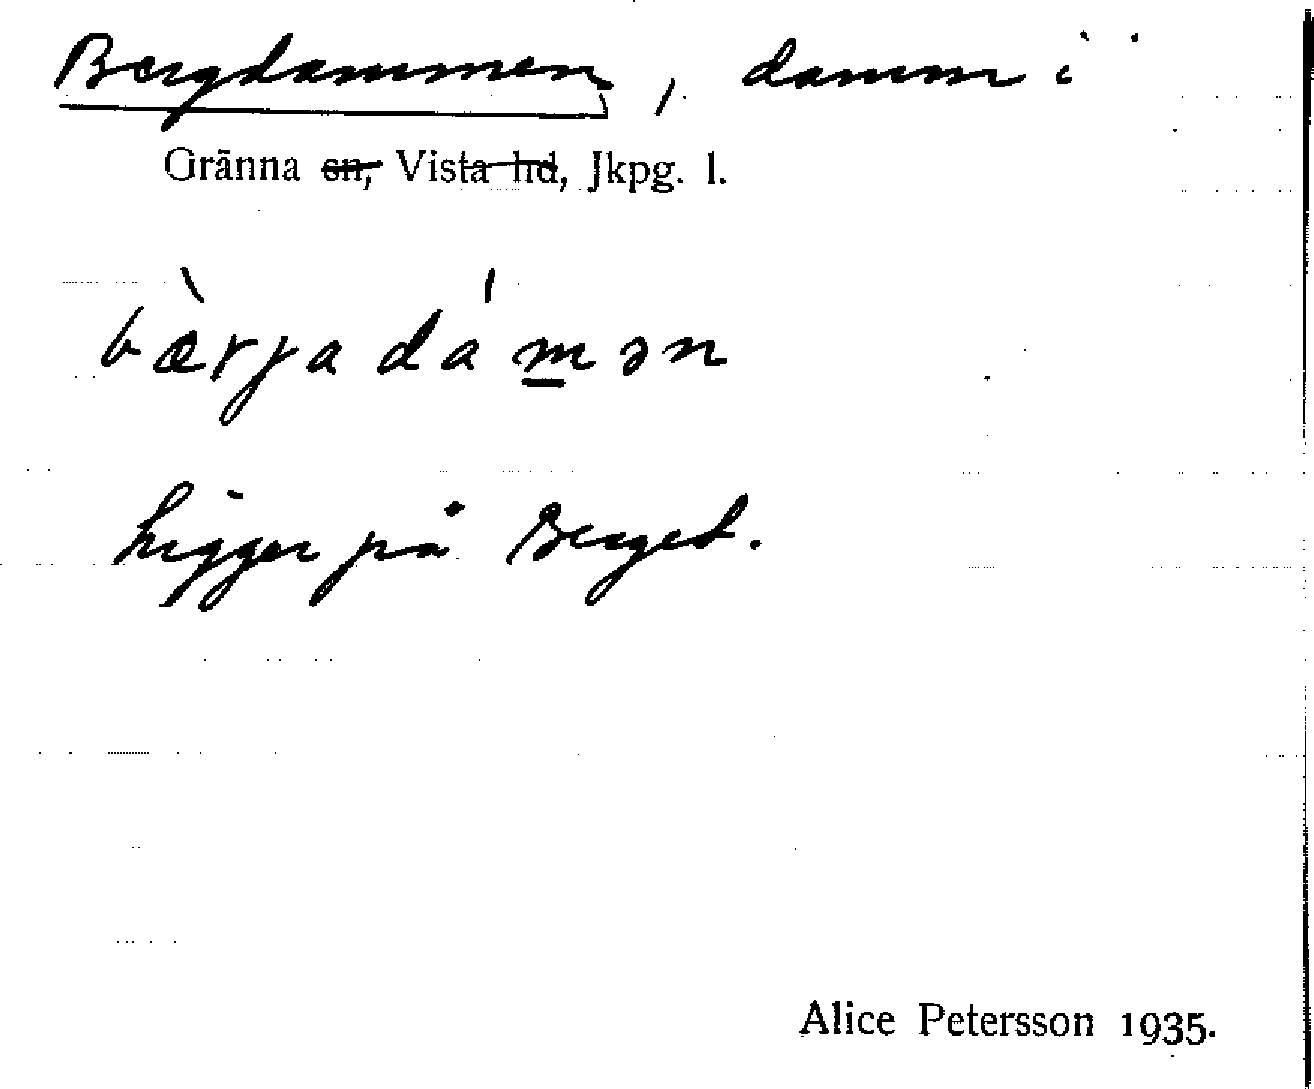 Bergdammen, damm i
Gränna sn, Vista hd, Jkpg. l.
bæ̀rjadámən
Ligger på Berget.
Alice Petersson 1935.